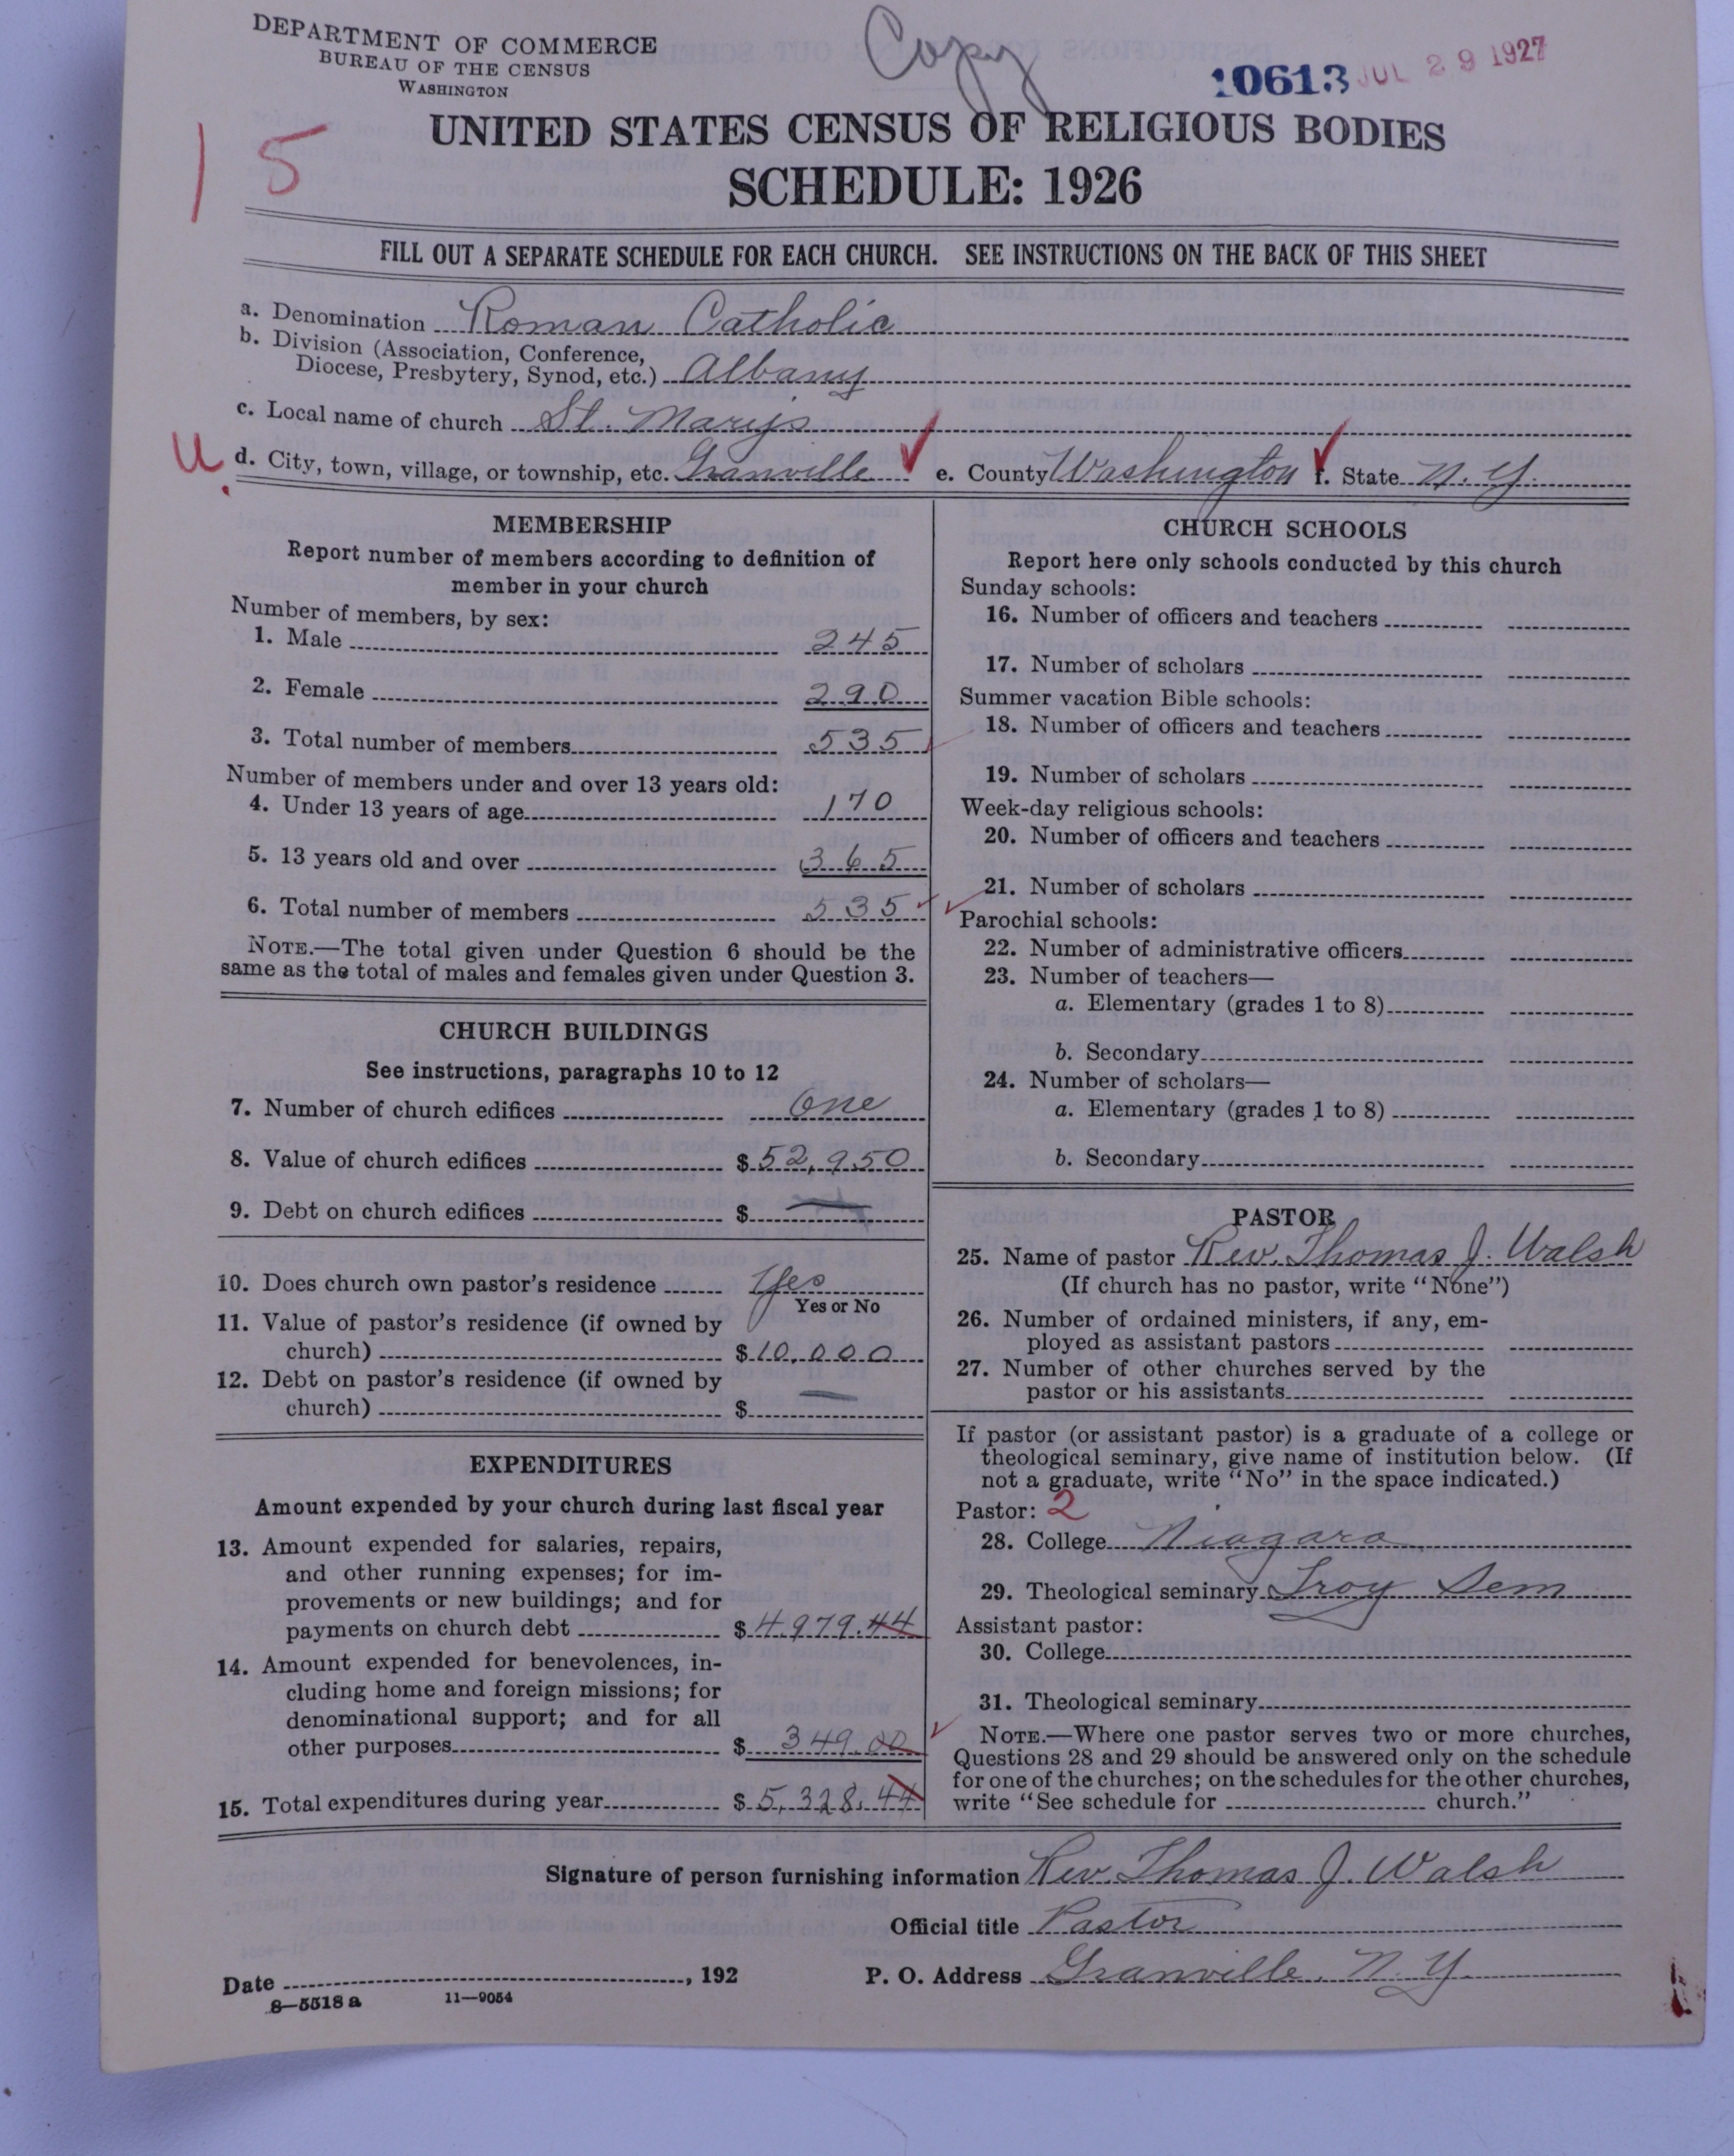 DEPARTMENT OF COMMERCE
BUREAU OF THE CENSUS
WASHINGTON
Copy
10613 JUL 29 1927
15
UNITED STATES CENSUS OF RELIGIOUS BODIES
SCHEDULE: 1926
FILL OUT A SEPARATE SCHEDULE FOR EACH CHURCH. SEE INSTRUCTIONS ON THE BACK OF THIS SHEET
a. Denomination Roman Catholic
b. Division (Association, Conference,
Diocese, Presbytery, Synod, etc.) Albany
c. Local name of church St. Mary's
U. d. City, town, village, or township, etc. Granville e. County Washington f. State N.Y.
MEMBERSHIP
Report number of members according to definition of
member in your church
Number of members, by sex:
1. Male 245
2. Female 290
3. Total number of members 535
Number of members under and over 13 years old:
4. Under 13 years of age 170
5. 13 years old and over 365
6. Total number of members 535
NOTE.—The total given under Question 6 should be the
same as the total of males and females given under Question 3.
CHURCH BUILDINGS
See instructions, paragraphs 10 to 12
7. Number of church edifices One
8. Value of church edifices $52,950
9. Debt on church edifices $—
10. Does church own pastor's residence Yes
Yes or No
11. Value of pastor's residence (if owned by
church) $10,000
12. Debt on pastor's residence (if owned by
church) $—
EXPENDITURES
Amount expended by your church during last fiscal year
13. Amount expended for salaries, repairs,
and other running expenses; for im-
provements or new buildings; and for
payments on church debt $4,979.44
14. Amount expended for benevolences, in-
cluding home and foreign missions; for
denominational support; and for all
other purposes $349.00
15. Total expenditures during year $5,328.44
CHURCH SCHOOLS
Report here only schools conducted by this church
Sunday schools:
16. Number of officers and teachers
17. Number of scholars
Summer vacation Bible schools:
18. Number of officers and teachers
19. Number of scholars
Week-day religious schools:
20. Number of officers and teachers
21. Number of scholars
Parochial schools:
22. Number of administrative officers
23. Number of teachers—
a. Elementary (grades 1 to 8)
b. Secondary
24. Number of scholars—
a. Elementary (grades 1 to 8)
b. Secondary
PASTOR
25. Name of pastor Rev. Thomas J. Walsh
(If church has no pastor, write "None")
26. Number of ordained ministers, if any, em-
ployed as assistant pastors
27. Number of other churches served by the
pastor or his assistants
If pastor (or assistant pastor) is a graduate of a college or
theological seminary, give name of institution below. (If
not a graduate, write "No" in the space indicated.)
Pastor: 2
28. College Niagara
29. Theological seminary Troy Sem
Assistant pastor:
30. College
31. Theological seminary
NOTE.—Where one pastor serves two or more churches,
Questions 28 and 29 should be answered only on the schedule
for one of the churches; on the schedules for the other churches,
write "See schedule for church."
Signature of person furnishing information Rev. Thomas J. Walsh
Official title Pastor
Date , 192 P. O. Address Granville, N.Y.
8—5518 a 11—9054